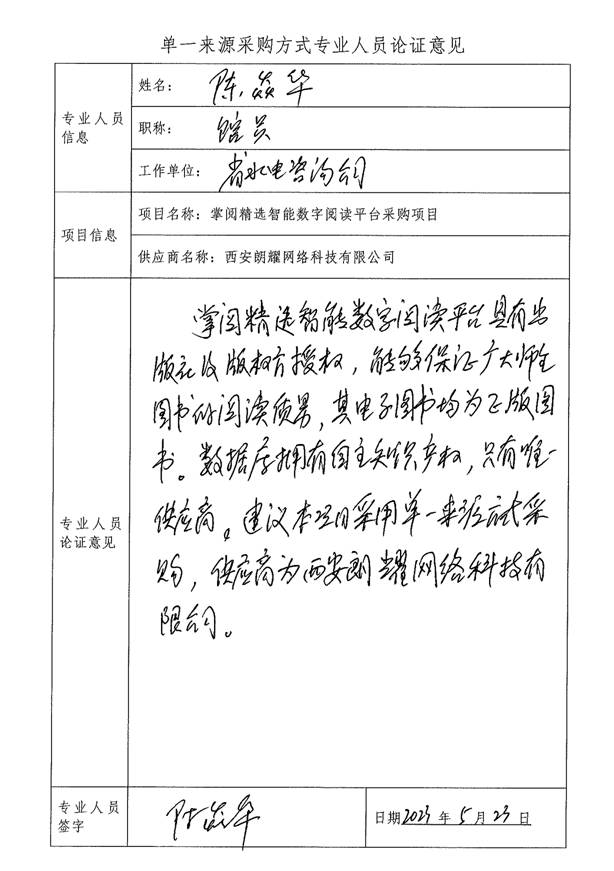 单一来源采购方式专业人员论证意见
专业人员
信息
姓名：陈焱华
职称：馆员
工作单位：省水电咨询公司
项目信息
项目名称：掌阅精选智能数字阅读平台采购项目
供应商名称：西安朗耀网络科技有限公司
专业人员
论证意见
掌阅精选智能数字阅读平台具有出
版社及版权方授权，能够保证广大师生
图书的阅读质男，其电子图书均为正版图
书。数据库拥有自主知识产权，只有唯一
供应商。建议本项目采用单一来源方式采
购，供应商为西安朗耀网络科技有
限公司。
专业人员
签字
陈焱华
日期2023年5月23日